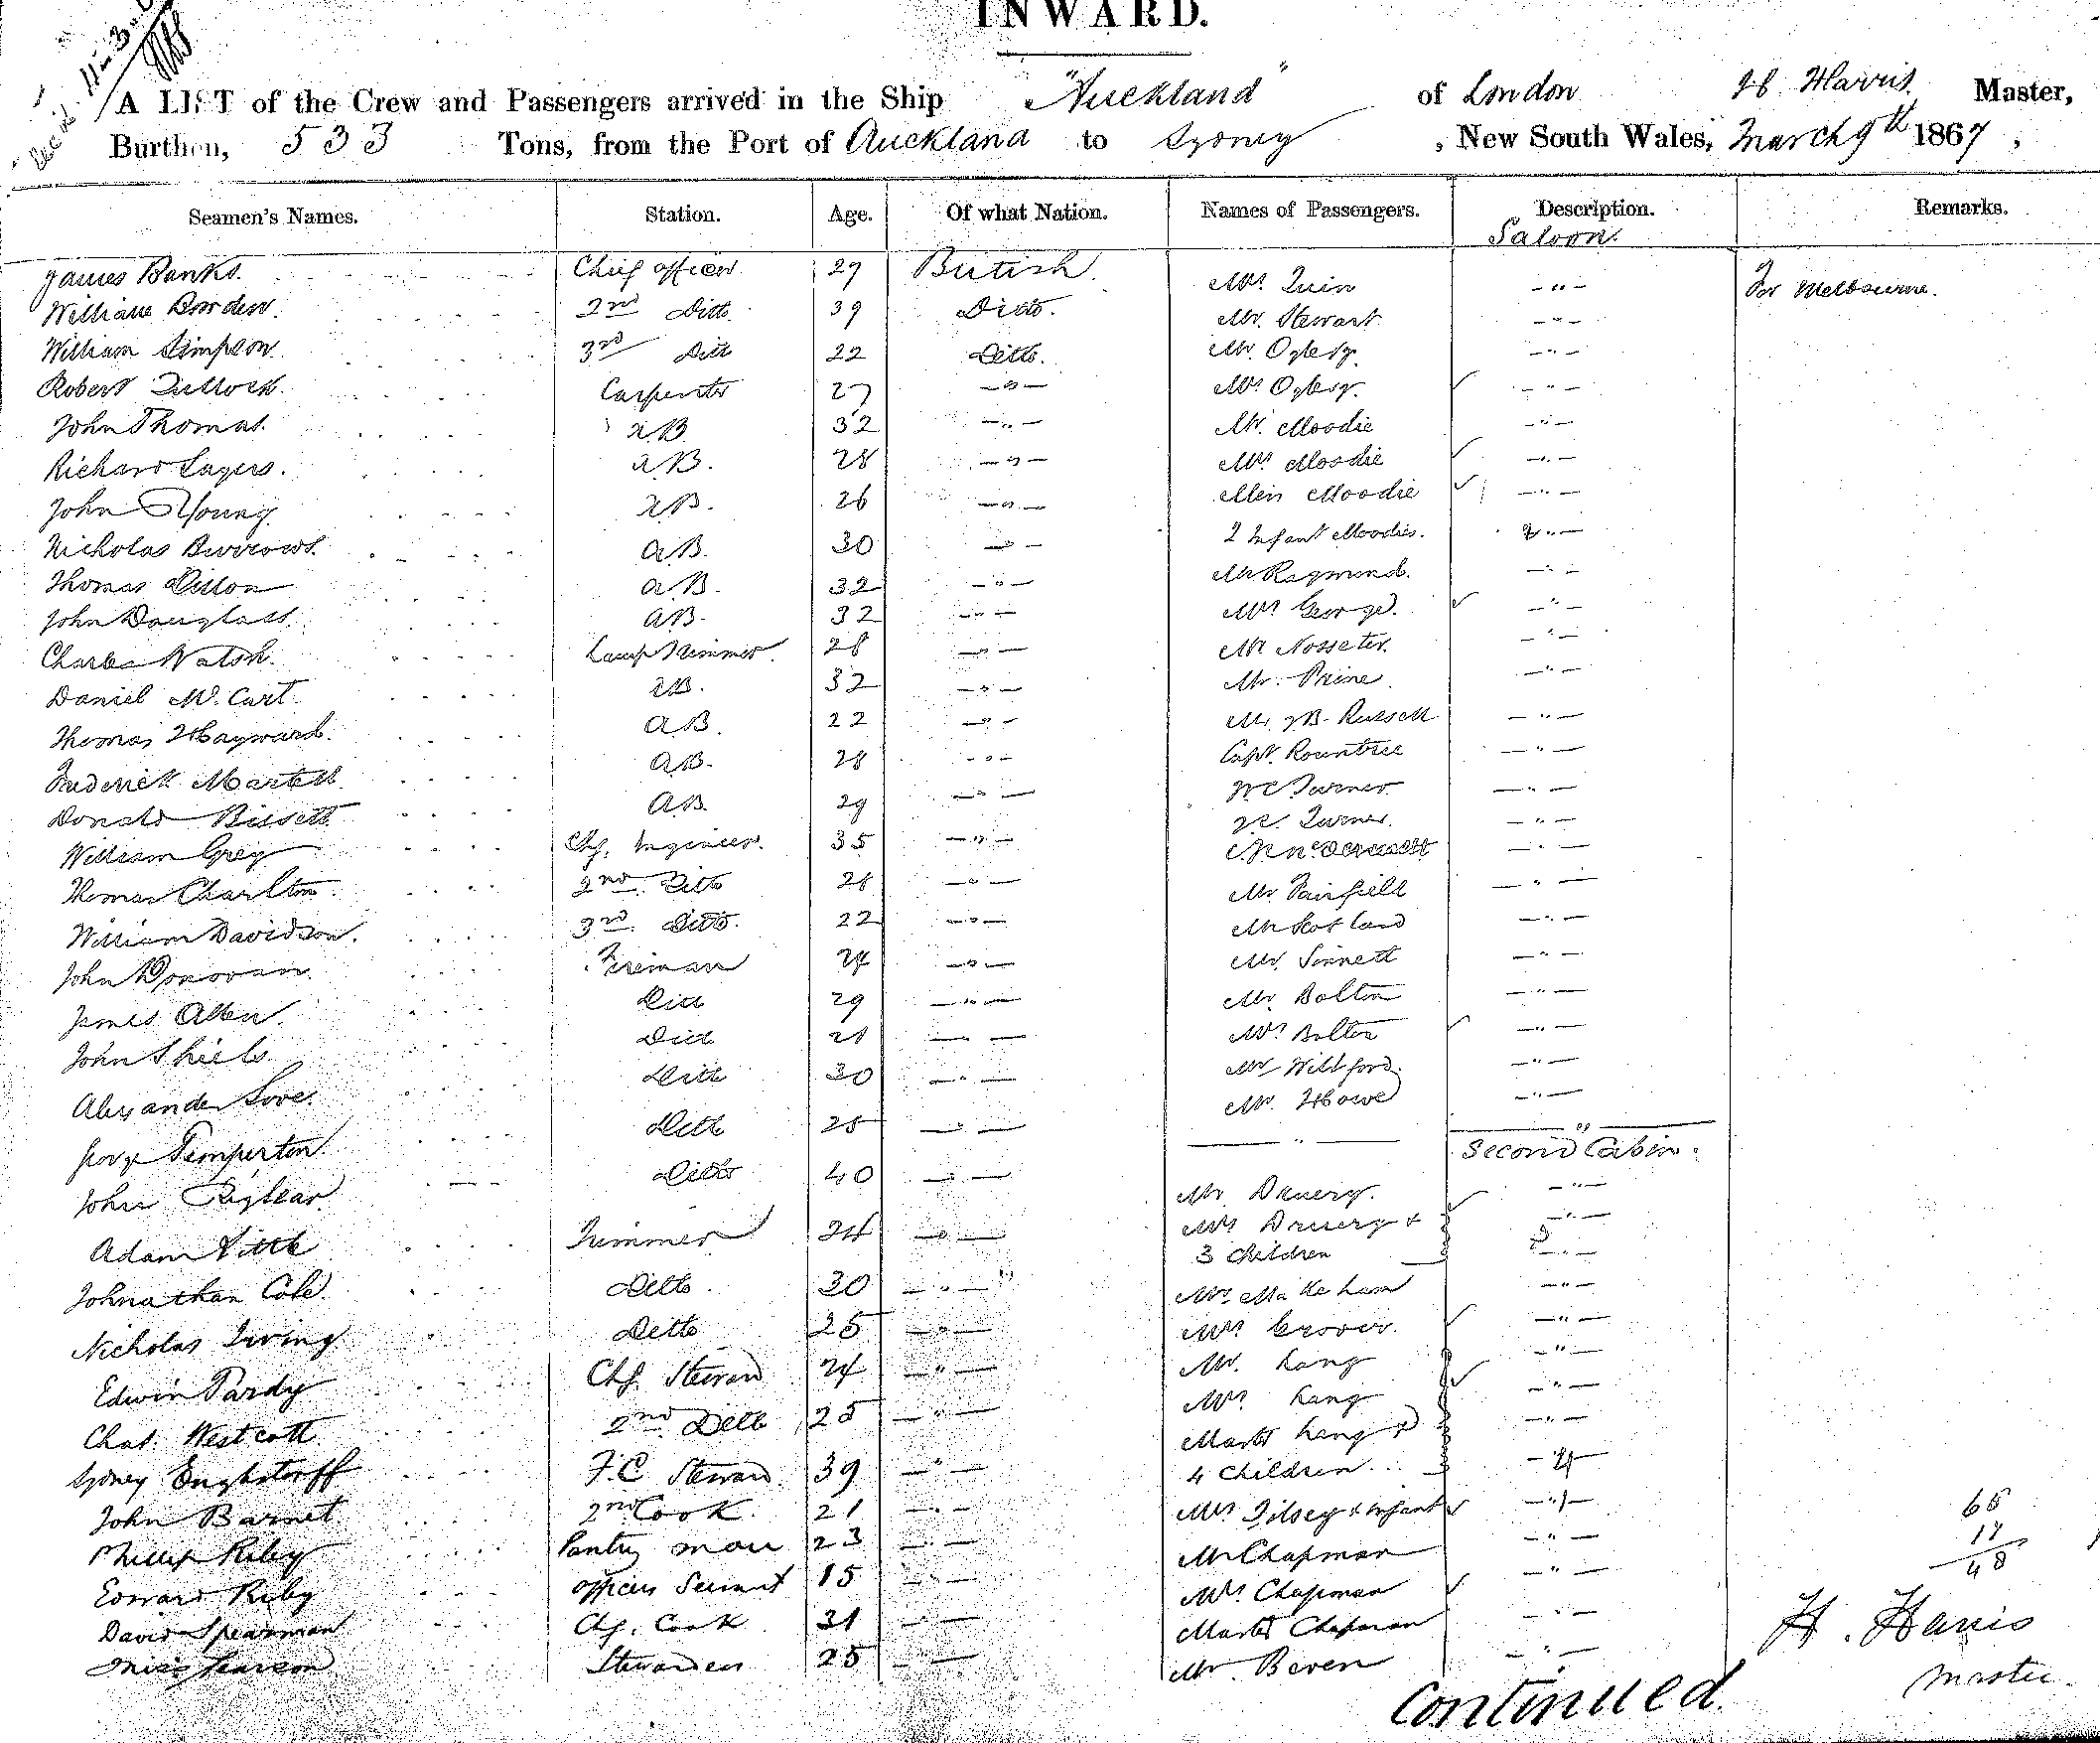 INWARD.
A LIST of the Crew and Passengers arrived in the Ship "Auckland" of London H. Harris Master,
Burthen, 533 Tons, from the Port of Auckland to Sydney, New South Wales, March 9th 1867,
Seamen's Names. Station. Age. Of what Nation. Names of Passengers. Description. Remarks.
Saloon.
James Banks. Chief officer 27 British. Mrs. Quin - " - For Melbourne.
William Borden. 2nd Ditto 39 Ditto. Mr. Stewart - " -
William Simpson 3rd Ditto 22 Ditto. Mr. Oglesy. - " -
Robert Tullock. Carpenter 27 - " - Mrs Oglesy. ✓ - " -
John Thomas. AB 32 - " - Mr. Moodie - " -
Richard Sayers. AB. 28 - " - Mrs Moodie ✓ - " -
John Young AB. 26 - " - Miss Moodie ✓ - " -
Nicholas Burrows. AB. 30 - " - 2 Infant Moodies. 2 " -
Thomas Dillon AB. 32 - " - Mr Raymond. - " -
John Douglass AB. 32 - " - Mrs George. ✓ - " -
Charles Walsh. Lamp Trimmer. 28 - " - Mr Nosseter. - " -
Daniel Mc. Cart. AB. 32 - " - Mr. Prime - " -
Thomas Hayward. AB. 22 - " - Mr. JB. Russell - " -
Frederick Martell AB. 28 - " - Capt. Rountree - " -
Donald Bissett AB. 29 - " - Turner - " -
William Grey Chf. Engineer. 35 - " - Turner. - " -
Thomas Charlton 2nd. Ditto 28 - " - Mr Fairfield - " -
William Davidson. 3rd. Ditto. 22 - " - Mr Scotland - " -
John Donovan. Fireman 24 - " - Mr. Sinnett - " -
James Allen. Ditto 29 - " - Mr Bolton - " -
John Shiels. Ditto 28 - " - Mrs Bolton ✓ - " -
Alexander Love. Ditto 30 - " - Mr Willford. - " -
George Temperton. Ditto 25 - " - Mr. Howe - " -
Second Cabin.
John Ditto 40 - " - Mr Druery. - " -
Adam Little Trimmer 24 - " - Mrs Druery & ✓ - " -
3 Children 3 " -
Johnathan Cole. Ditto. 30 - " - Mr. Makeham - " -
Nicholas Irving Ditto 25 - " - Mrs Groover. ✓ - " -
Edwin Pardy Chf. Steward 24 - " - Mr. Lang - " -
Mrs Lang ✓ - " -
Chas. Westcott. 2nd. Ditto 25 - " - Master Lang & - " -
Sydney Enghstorff F.C Steward 39 - " - 4 Children. - 4 -
John Barnet 2nd Cook. 21 - " - Mrs Tilsey & infant ✓ - " -
Phillip Riby Pantry man 23 - " - Mr Chapman - " -
Edward Riby officers Servant 15 - " - Mrs. Chapman ✓ - " -
David Spearman Chf. Cook 31 - " - Master Chapman - " -
Miss Pearson Stewardess 25 - " - Mr. Beven - " -
65
17
48
H. Harris
Master.
Continued.